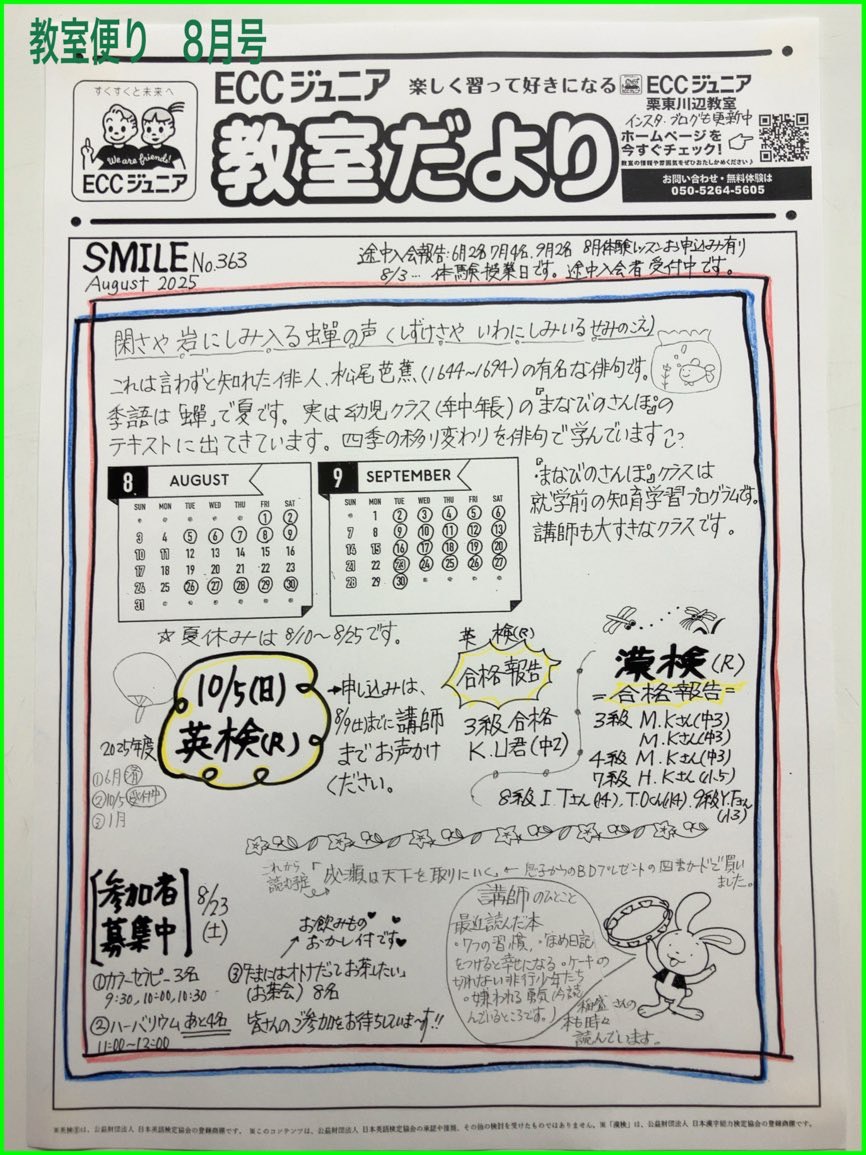 教室便り　8月号
すくすくと未来へ
We are friends!
ECCジュニア
ECCジュニア
楽しく習って好きになる
教室だより
ECCジュニア
栗東川辺教室
インスタ・ブログも更新中
ホームページを
今すぐチェック!
教室の情報や雰囲気をぜひおたしかめください♪
お問い合わせ・無料体験は
050-5264-5605
SMILE No.363
August 2025
途中入会報告:6月2名 7月4名、9月2名 8月体験レッスンお申込み有り
8/3… 体験授業日です。途中入会者 受付中です。
閑さや 岩にしみ入る 蟬の声 (しずけさや いわにしみいる せみのこえ)
これは言わずと知れた俳人、松尾芭蕉(1644~1694)の有名な俳句です。
季語は「蟬」で夏です。実は幼児クラス(年中年長)の『まなびのさんぽ』の
テキストに出てきています。四季の移り変わりを俳句で学んでいます
8 AUGUST
SUN MON TUE WED THU FRI SAT
1 2
3 4 5 6 7 8 9
10 11 12 13 14 15 16
17 18 19 20 21 22 23
24 25 26 27 28 29 30
31
9 SEPTEMBER
SUN MON TUE WED THU FRI SAT
1 2 3 4 5 6
7 8 9 10 11 12 13
14 15 16 17 18 19 20
21 22 23 24 25 26 27
28 29 30
『まなびのさんぽ』クラスは
就学前の知育学習プログラムです。
講師も大すきなクラスです。
☆夏休みは 8/10~8/25です。
10/5(日)
英検(R)
2025年度
①6月 済
②10/5 受付中
③1月
→申し込みは、
8/9(土)までに講師
までお声かけ
ください。
英 検(R)
合格報告
3級合格
K.U君(中2)
漢検(R)
=合格報告=
3級 M.Kさん(中3)
M.Kさん(中3)
4級 M.Kさん(中3)
7級 H.Kさん(小5)
8級 I.Tさん(小4)、T.Oくん(小4)、9級Y.Fさん
(小3)
これから
読む予定
「成瀬は天下を取りにいく」← 息子からのBDプレゼントの図書カードで買い
ました。
【参加者
募集中】
8/23
(土)
お飲みもの♥ ♥
おかし付です♥
①カラーセラピー 3名
9:30, 10:00, 10:30
②ハーバリウム あと4名
11:00~12:00
③「たまにはオトナだってお茶したい」
(お茶会) 8名
皆さんのご参加をお待ちしていま~す!!
講師のひとこと
最近読んだ本
・7つの習慣、・ほめ日記
をつけると幸せになる ・ケーキの
切れない非行少年たち
・嫌われる勇気(今読
んでいるところです。)
稲盛さんの
本も時々
読んでいます。
※英検®は、公益財団法人 日本英語検定協会の登録商標です。 ※このコンテンツは、公益財団法人 日本英語検定協会の承認や推奨、その他の検討を受けたものではありません。 ※「漢検」は、公益財団法人 日本漢字能力検定協会の登録商標です。